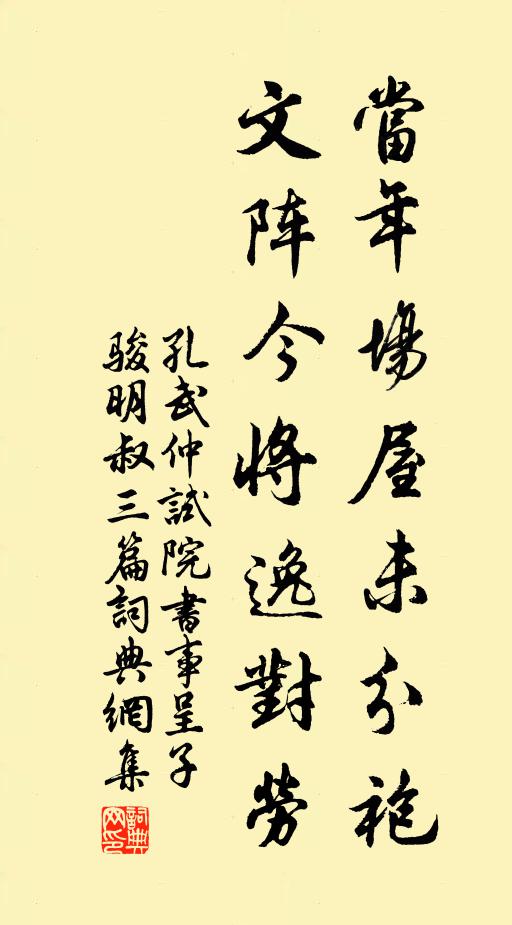 當年場屋未分袍
文阵今将逸對勞
孔武仲試院書事呈子
駿明叔三篇詞典網集
詞典網印